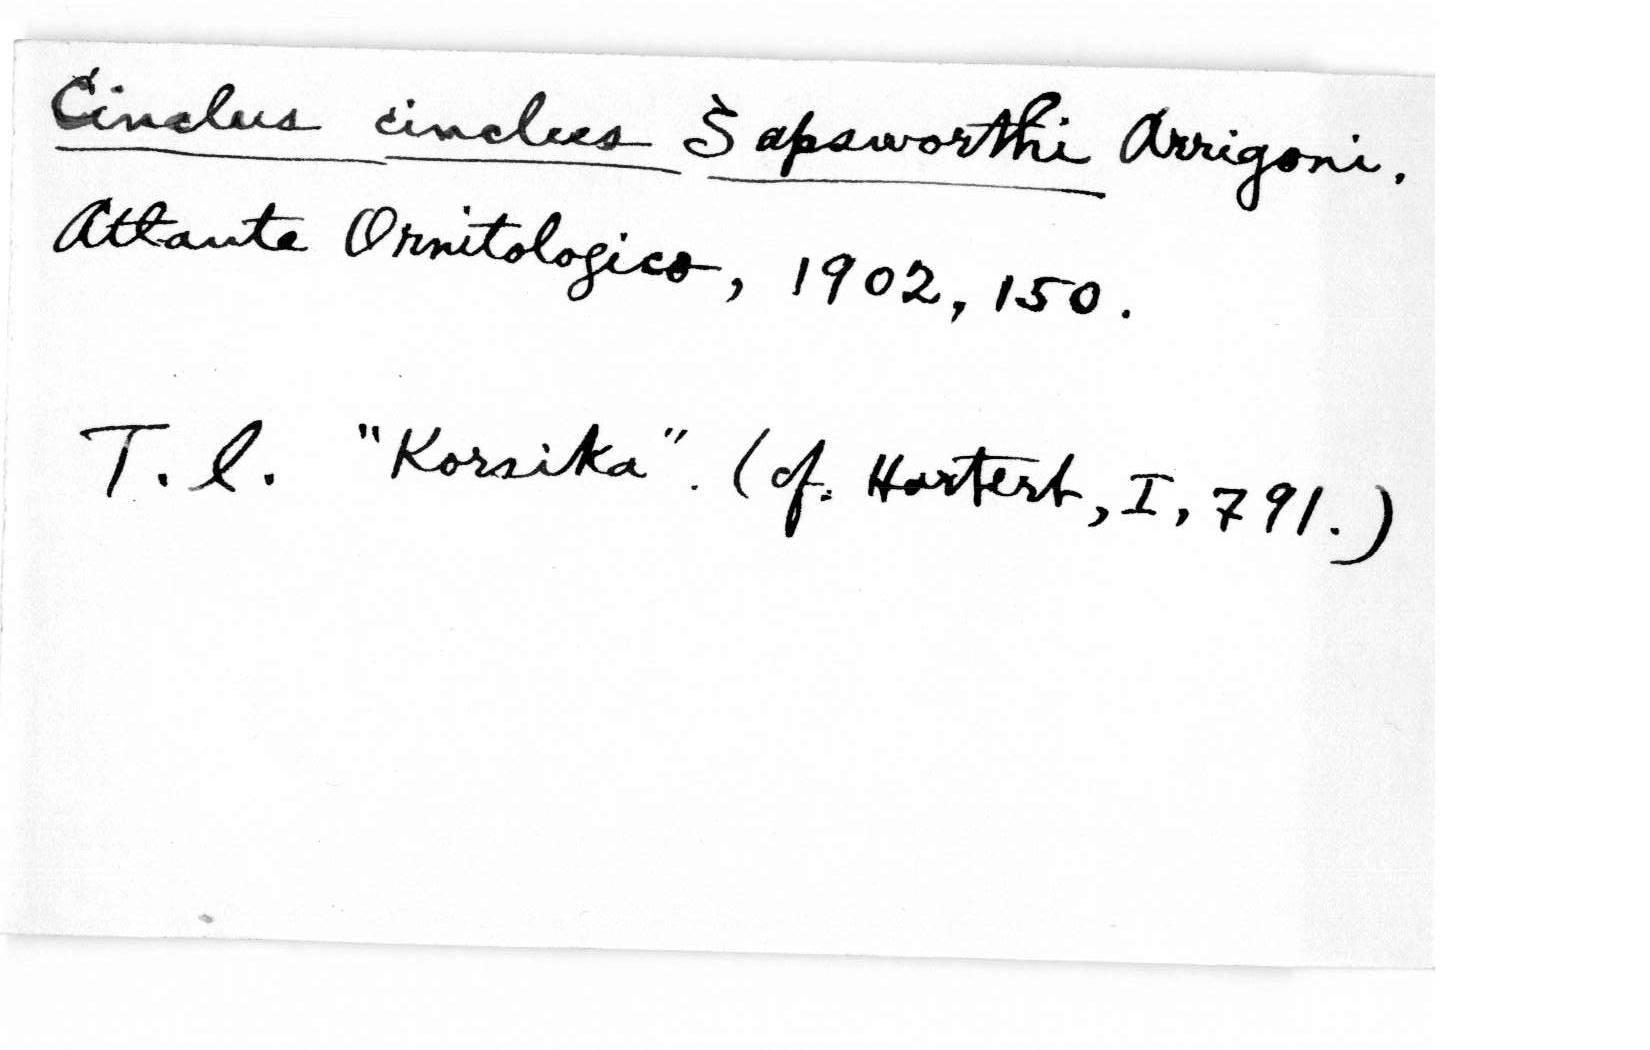 Cinclus cinclus Sapsworthi Arrigoni.
Atlante Ornitologico, 1902, 150.
T. l. "Korsika". (cf. Hartert, I, 791.)